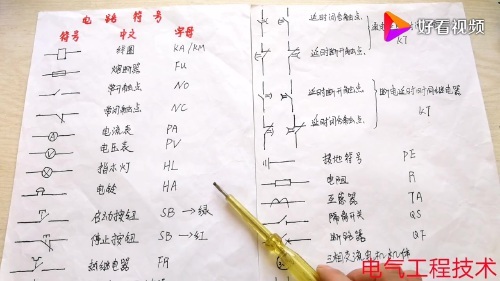 电路符号
符号 中文 字母
线圈 KA/KM
熔断器 FU
常开触点 NO
常闭触点 NC
电流表 PA
电压表 PV
指示灯 HL
电铃 HA
启动按钮 SB→绿
停止按钮 SB→红
热继电器 FR
延时闭合触点
KT
延时断开触点
延时断开触点
断电延时时间继电器
KT
延时闭合触点
接地符号 PE
电阻 R
互感器 TA
隔离开关 QS
断路器 QF
三相交流电机
好看视频
电气工程技术